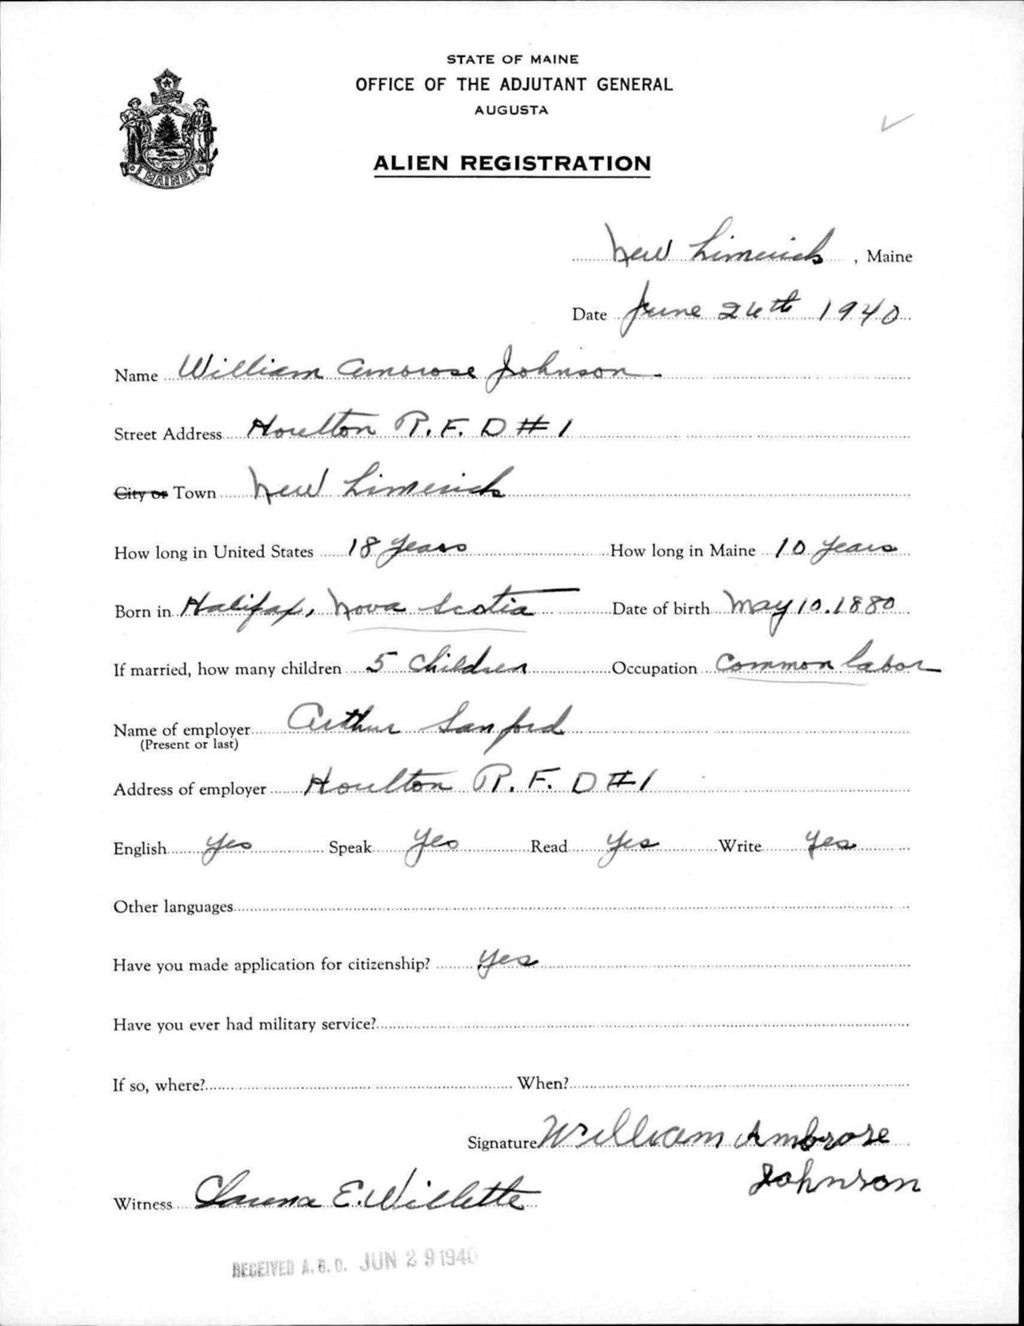 STATE OF MAINE
OFFICE OF THE ADJUTANT GENERAL
AUGUSTA
MAINE
ALIEN REGISTRATION
New Limerick, Maine
Date June 26th 1940
Name William Amorose Johnson
Street Address Houlton R.F.D #1
City or Town New Limerick
How long in United States 18 years How long in Maine 10 years
Born in Halifax, Nova Scotia Date of birth May 10.1880
If married, how many children 5 children Occupation Common labor
Name of employer Arthur Sanford
(Present or last)
Address of employer Houlton R.F. D #1
English yes Speak yes Read yes Write yes
Other languages
Have you made application for citizenship? yes
Have you ever had military service?
If so, where? When?
Signature William Ambrose
Johnson
Witness E. Willette
RECEIVED A.G.O. JUN 29 1940